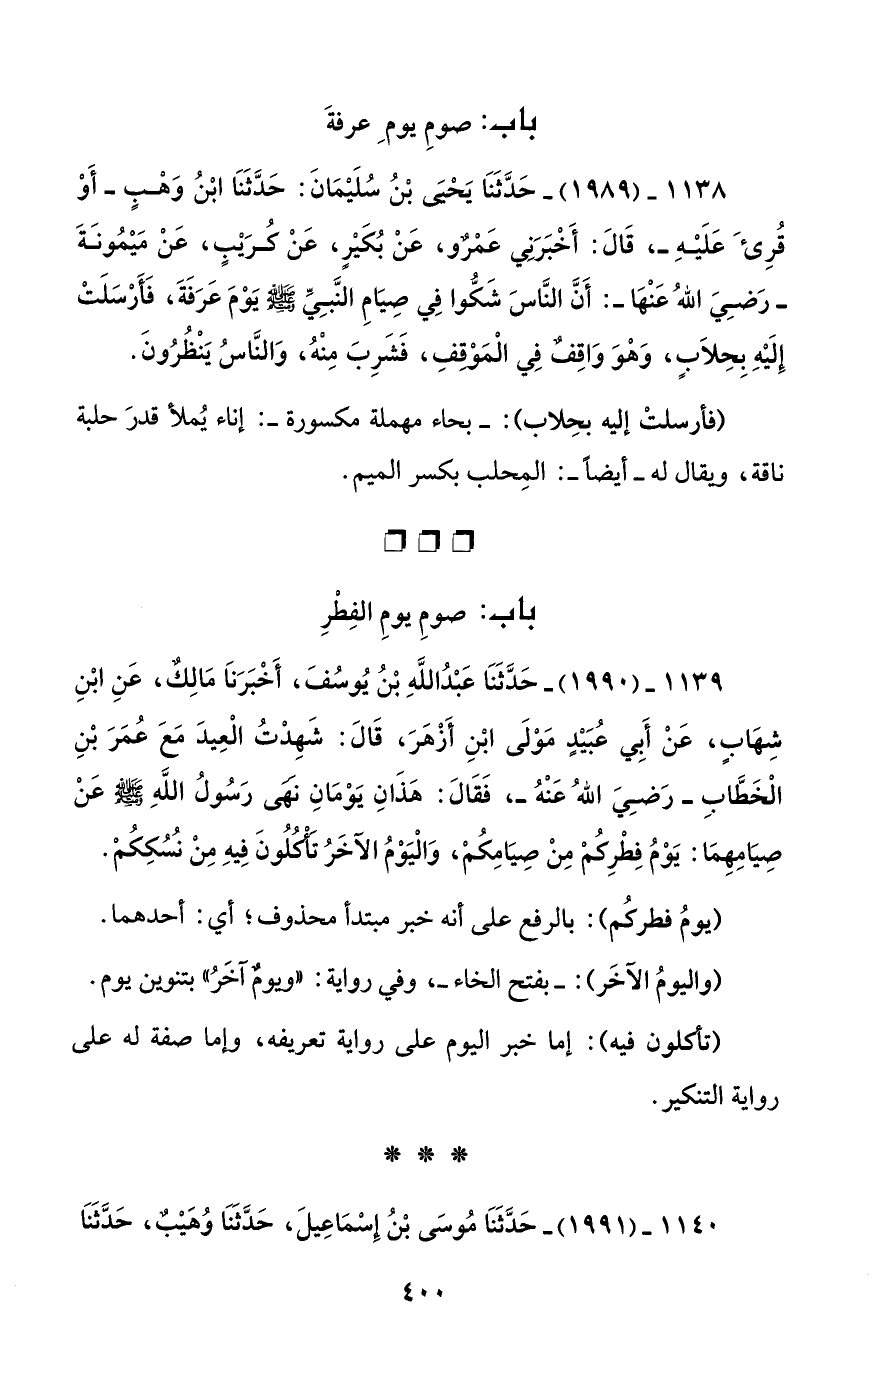 باب: صومِ يومِ عرفةَ
١١٣٨ ـ (١٩٨٩) ـ حَدَّثَنَا يَحْيَى بْنُ سُلَيْمَانَ: حَدَّثَنَا ابْنُ وَهْبٍ ـ أَوْ
قُرِئَ عَلَيْهِ ـ، قَالَ: أَخْبَرَنِي عَمْرٌو، عَنْ بُكَيْرٍ، عَنْ كُرَيْبٍ، عَنْ مَيْمُونَةَ
ـ رَضِيَ اللهُ عَنْهَا ـ: أَنَّ النَّاسَ شَكُّوا فِي صِيَامِ النَّبِيِّ ﷺ يَوْمَ عَرَفَةَ، فَأَرْسَلَتْ
إِلَيْهِ بِحِلاَبٍ، وَهْوَ وَاقِفٌ فِي الْمَوْقِفِ، فَشَرِبَ مِنْهُ، وَالنَّاسُ يَنْظُرُونَ.
(فأرسلتْ إليه بحِلاب): ـ بحاء مهملة مكسورة ـ: إناء يُملأ قدرَ حلبة
ناقة، ويقال له ـ أيضاً ـ: المِحلب بكسر الميم.
باب: صومِ يومِ الفِطْرِ
١١٣٩ ـ (١٩٩٠) ـ حَدَّثَنَا عَبْدُاللَّهِ بْنُ يُوسُفَ، أَخْبَرَنَا مَالِكٌ، عَنِ ابْنِ
شِهَابٍ، عَنْ أَبِي عُبَيْدٍ مَوْلَى ابْنِ أَزْهَرَ، قَالَ: شَهِدْتُ الْعِيدَ مَعَ عُمَرَ بْنِ
الْخَطَّابِ ـ رَضِيَ اللهُ عَنْهُ ـ، فَقَالَ: هَذَانِ يَوْمَانِ نَهَى رَسُولُ اللَّهِ ﷺ عَنْ
صِيَامِهِمَا: يَوْمُ فِطْرِكُمْ مِنْ صِيَامِكُمْ، وَالْيَوْمُ الآخَرُ تَأْكُلُونَ فِيهِ مِنْ نُسُكِكُمْ.
(يومُ فطركُم): بالرفع على أنه خبر مبتدأ محذوف؛ أي: أحدهما.
(واليومُ الآخَر): ـ بفتح الخاء ـ، وفي رواية: «ويومٌ آخَرُ» بتنوين يوم.
(تأكلون فيه): إما خبر اليوم على رواية تعريفه، وإما صفة له على
رواية التنكير.
* * *
١١٤٠ ـ (١٩٩١) ـ حَدَّثَنَا مُوسَى بْنُ إِسْمَاعِيلَ، حَدَّثَنَا وُهَيْبٌ، حَدَّثَنَا
٤٠٠